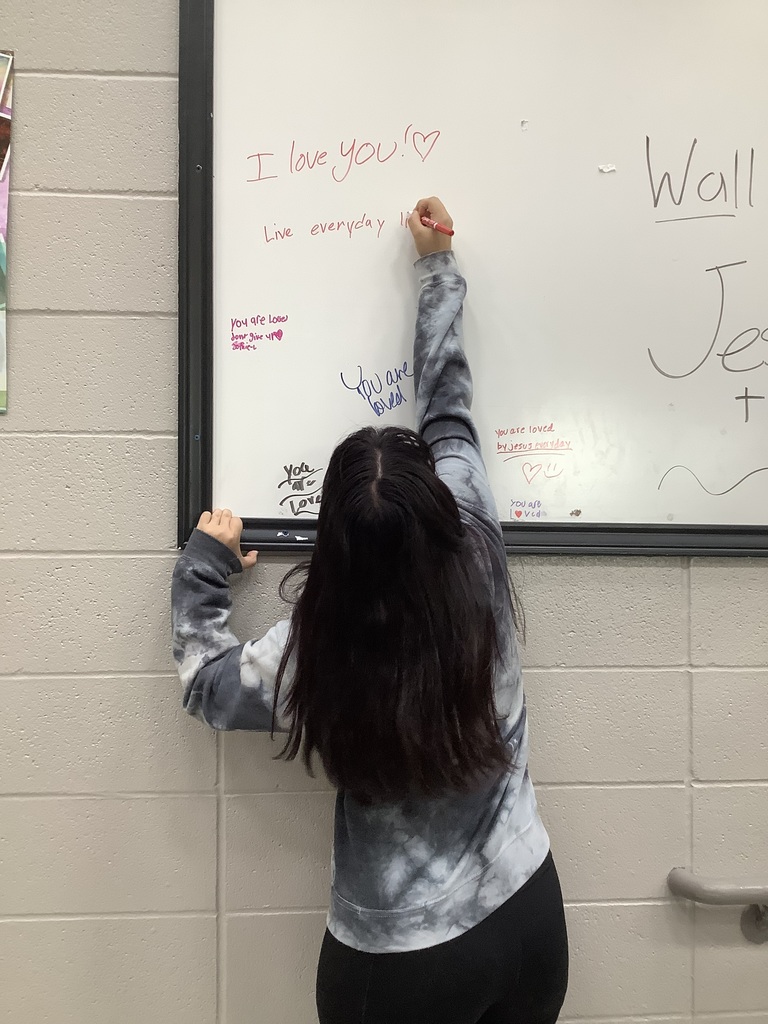 I love you!
Live everyday li
You are Loved
dont give up
You are
loved
You
are
Loved
you are loved
by jesus everyday
YOU ARE
L ved
Wall
Jes